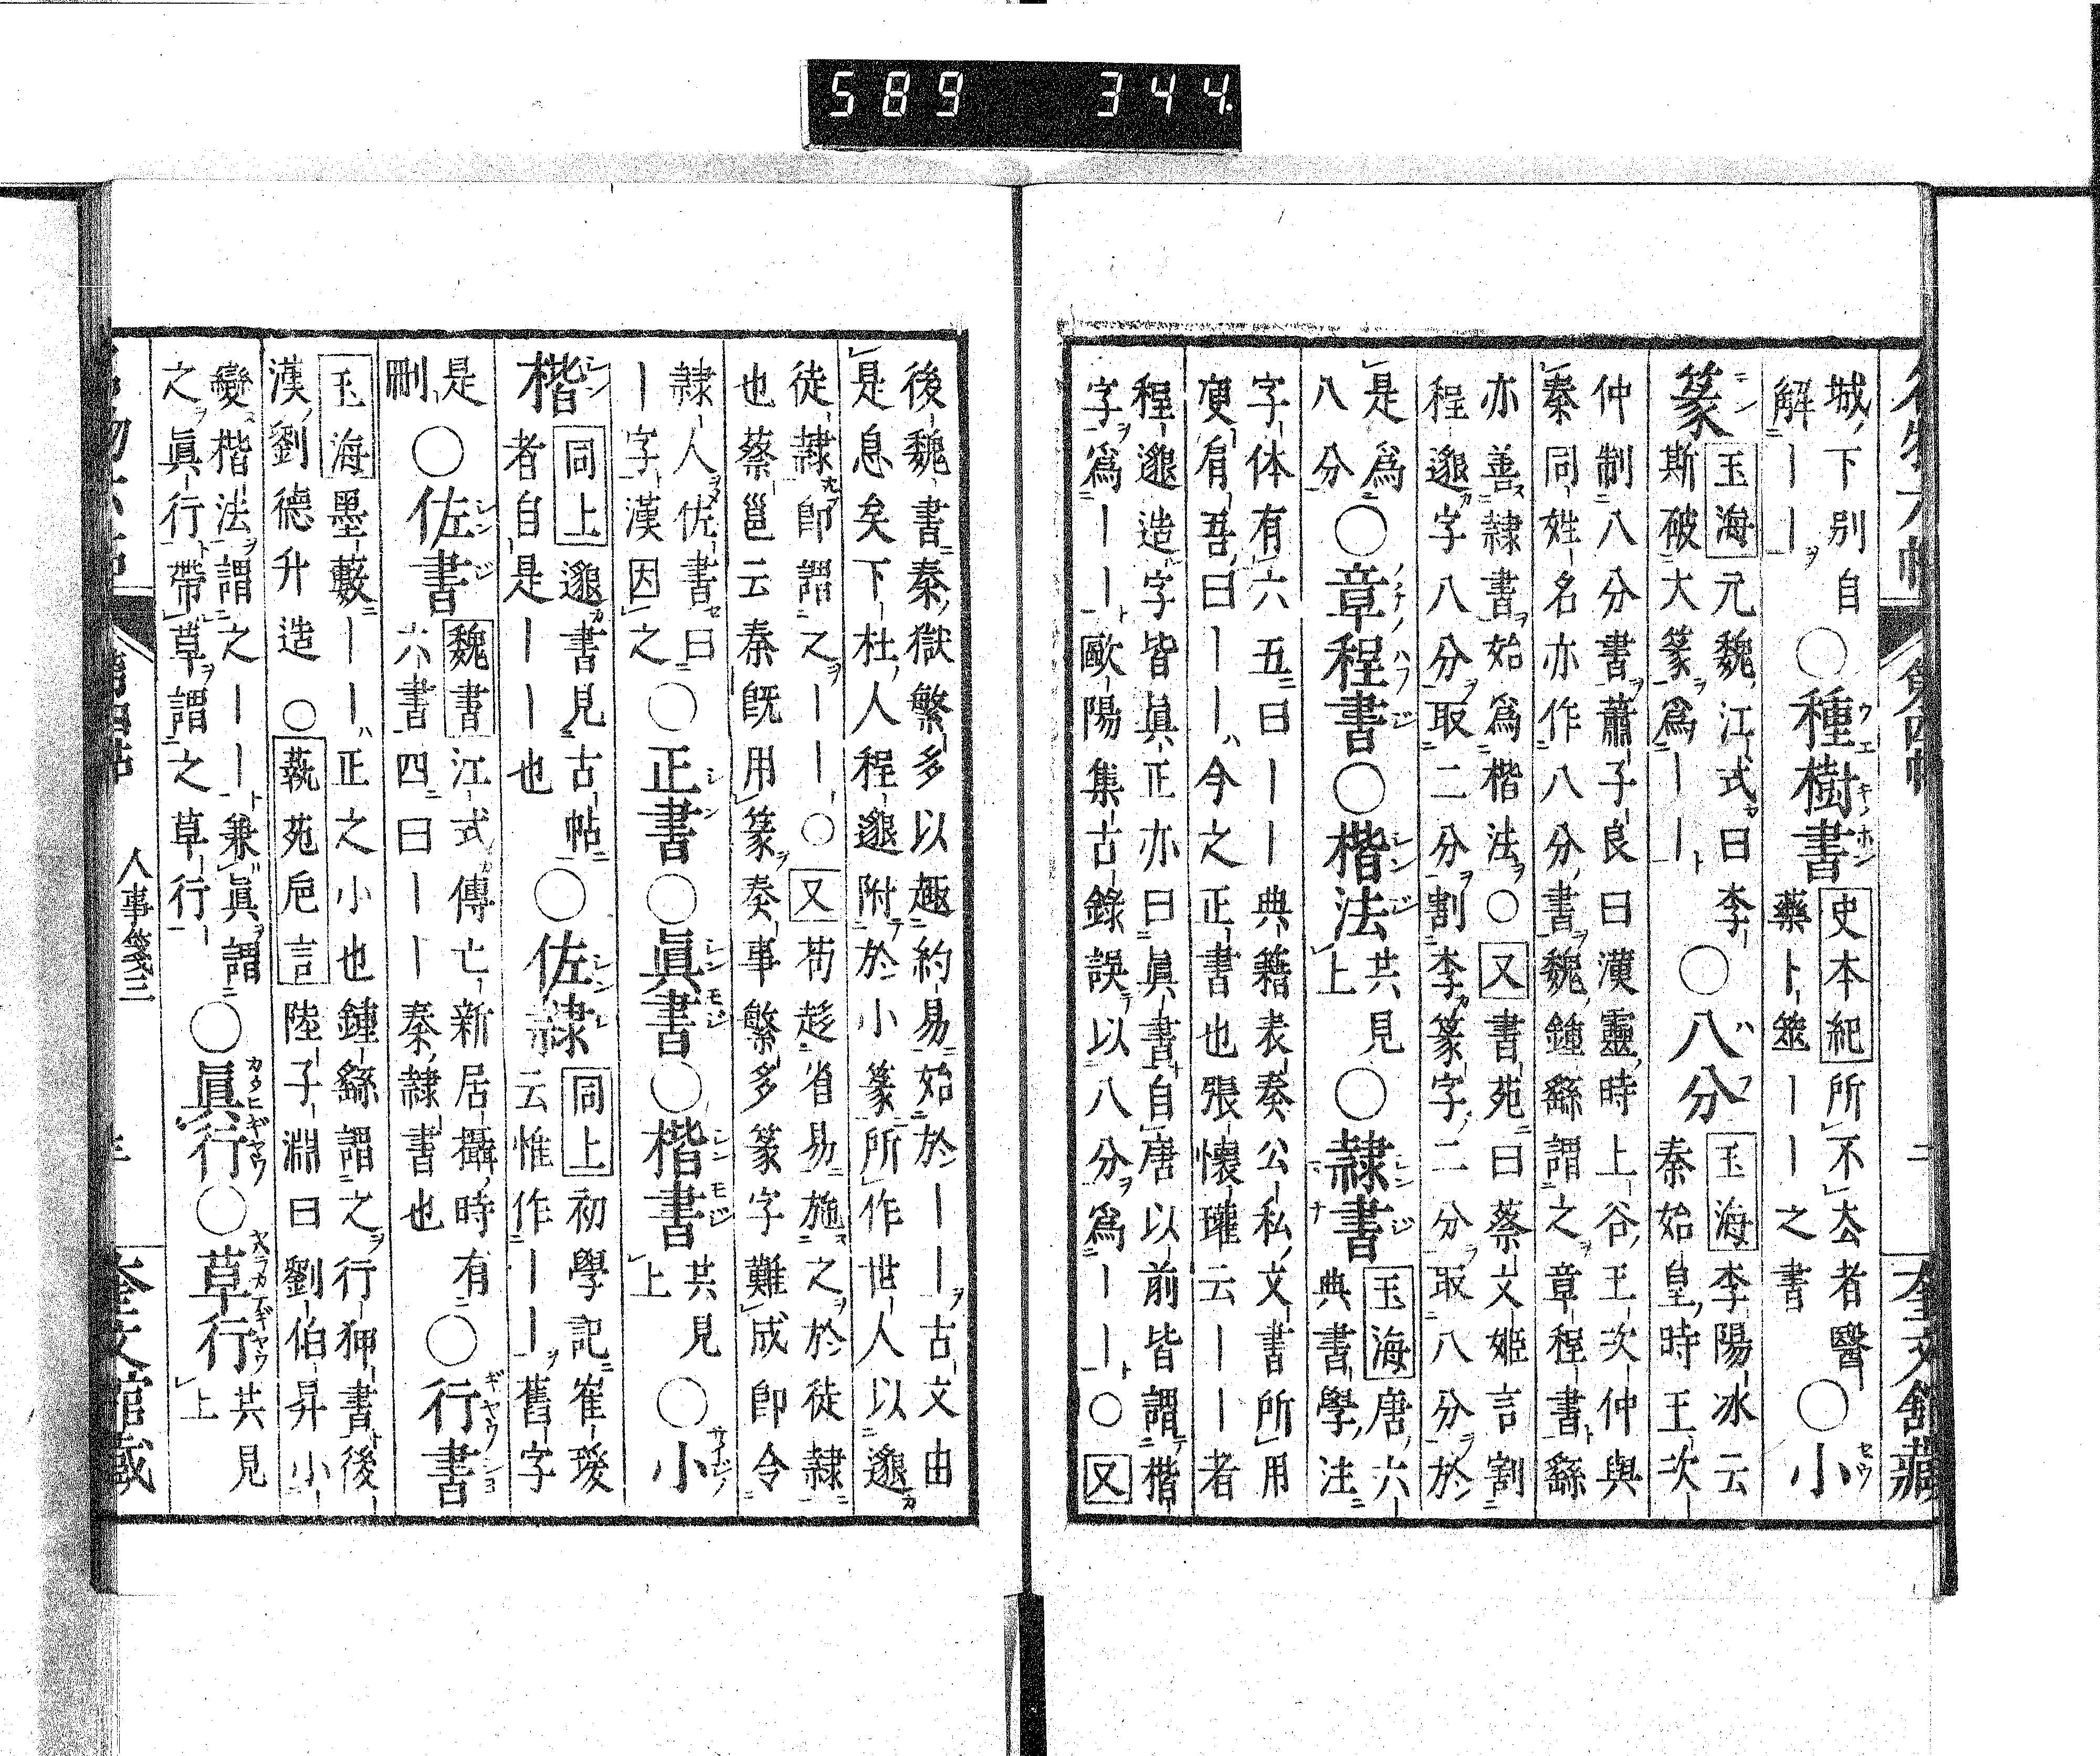 589 344.
城下別自
解一一
○種樹書
史本紀所不去者醫
藥卜筮一一之書
○小
篆
玉海元魏江式曰李
斯破大篆爲一一
○八分
玉海李陽冰云
秦始皇時王次
仲制八分書蕭子良曰漢靈時上谷王次仲與
秦同姓名亦作八分書魏鍾繇謂之章程書繇
亦善隷書始爲楷法○又書苑曰蔡文姬言割
程邈字八分取二分割李篆字二分取八分於
是爲
八分
○章程書○楷法
共見
上
○隷書
玉海唐六
典書學注
字体有六五曰一一典籍表奏公私文書所用
庾肩吾曰一一今之正書也張懷瓘云一一者
程邈造字皆眞正亦曰眞書自唐以前皆謂楷
字爲一一歐陽集古錄誤以八分爲一一○又
後魏書秦獄繁多以趣約易始於一一古文由
是息矣下杜人程邈附於小篆所作世人以邈
徒隷即謂之一一○又苟趁省易施之於徒隷
也蔡邕云秦既用篆奏事繁多篆字難成即令
隷人佐書曰
一字漢因之
○正書○眞書○楷書
共見
上
○小
楷
同上邈書見古帖
者自是一一也
○佐隷
同上初學記崔瑗
云惟作一一舊字
是
刪
○佐書
魏書江式傳亡新居攝時有
六書四曰一一秦隷書也
○行書
玉海墨藪一一正之小也鍾繇謂之行狎書後
漢劉德升造○蓺苑巵言陸子淵曰劉伯昇小
變楷法謂之一一兼眞謂
之眞行帶草謂之草行
○眞行○草行
共見
上
人事箋三
奎文館藏